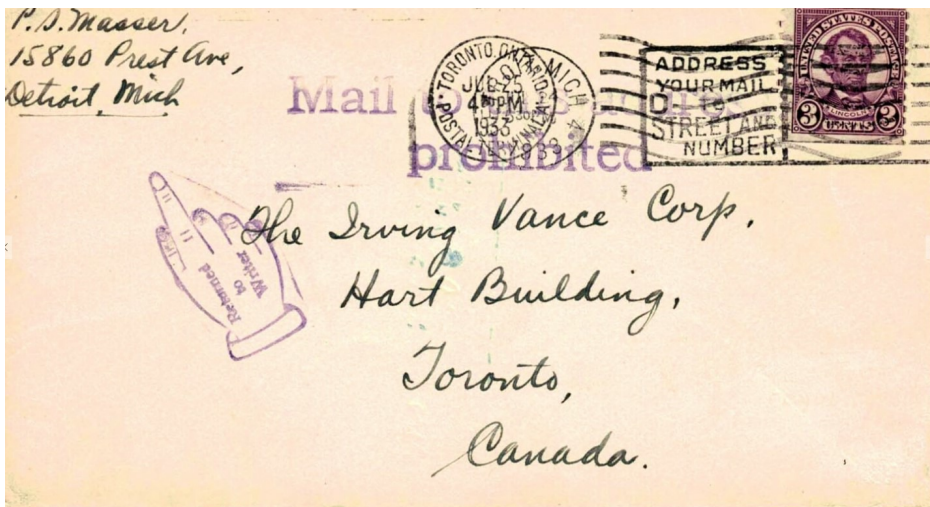 P.S. Masser,
15860 Prest Ave,
Detroit, Mich
Mail to this address
prohibited
TORONTO, ONTARIO
POSTAL TERMINAL A
4 PM
1933
MICH
1933
ADDRESS
YOUR MAIL
TO
STREET AND
NUMBER
UNITED STATES POSTAGE
LINCOLN
3 CENTS 3
Returned
to
Writer
The Irving Vance Corp.
Hart Building,
Toronto,
Canada.